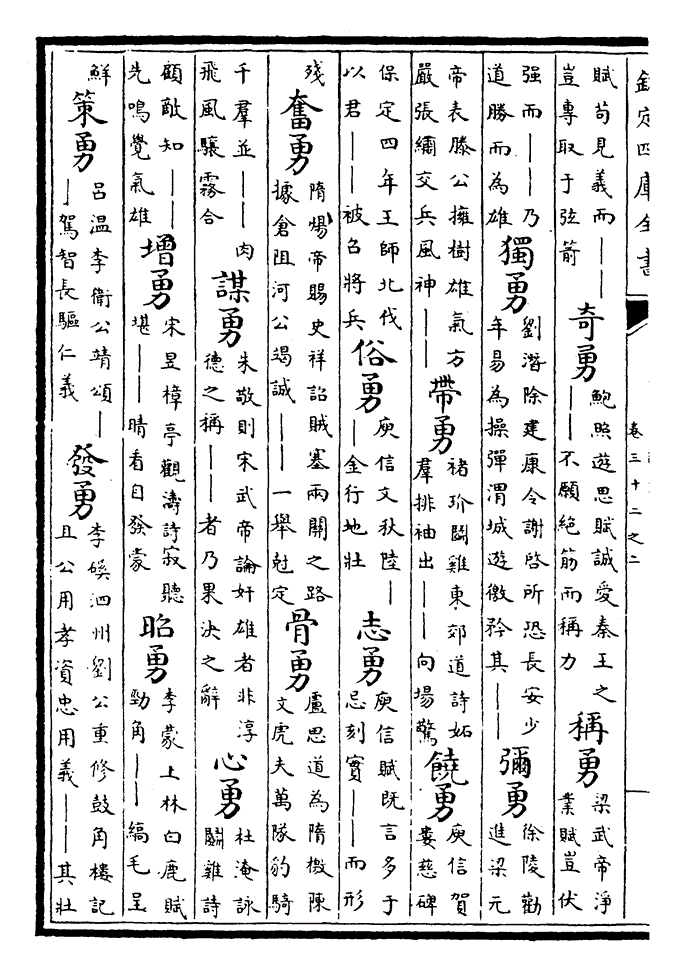 欽定四庫全書
卷三十二之二
賦苟見義而——
豈專取于弦箭
奇勇
鮑照遊思賦誠愛秦王之
——不願絶筋而稱力
稱勇
梁武帝淨
業賦豈伏
强而——乃
道勝而為雄
獨勇
劉潛除建康令謝啓所恐長安少
年易為操彈渭城遊徼矜其——
彌勇
徐陵勸
進梁元
帝表滕公擁樹雄氣方
嚴張繡交兵風神——
帶勇
褚玠鬭雞東郊道詩妬
羣排袖出——向場驚
饒勇
庾信賀
婁慈碑
保定四年王師北伐
以君——被召將兵
俗勇
庾信文秋陸—
—金行地壯
志勇
庾信賦既言多于
忌刻實——而形
殘
奮勇
隋煬帝賜史祥詔賊塞兩關之路
據倉阻河公竭誠——一舉尅定
骨勇
盧思道為隋檄陳
文虎夫萬隊豹騎
千羣並——肉
飛風驤霧合
謀勇
朱敬則宋武帝論奸雄者非淳
德之稱——者乃果決之辭
心勇
杜淹詠
鬭雞詩
顧敵知——
先鳴覺氣雄
增勇
宋昱樟亭觀濤詩寂聽
堪——晴看自發蒙
昭勇
李蒙上林白鹿賦
勁角——縞毛呈
鮮
策勇
呂温李衛公靖頌—
—駕智長驅仁義
發勇
李磎泗州劉公重修鼓角樓記
且公用孝資忠用義——其壯